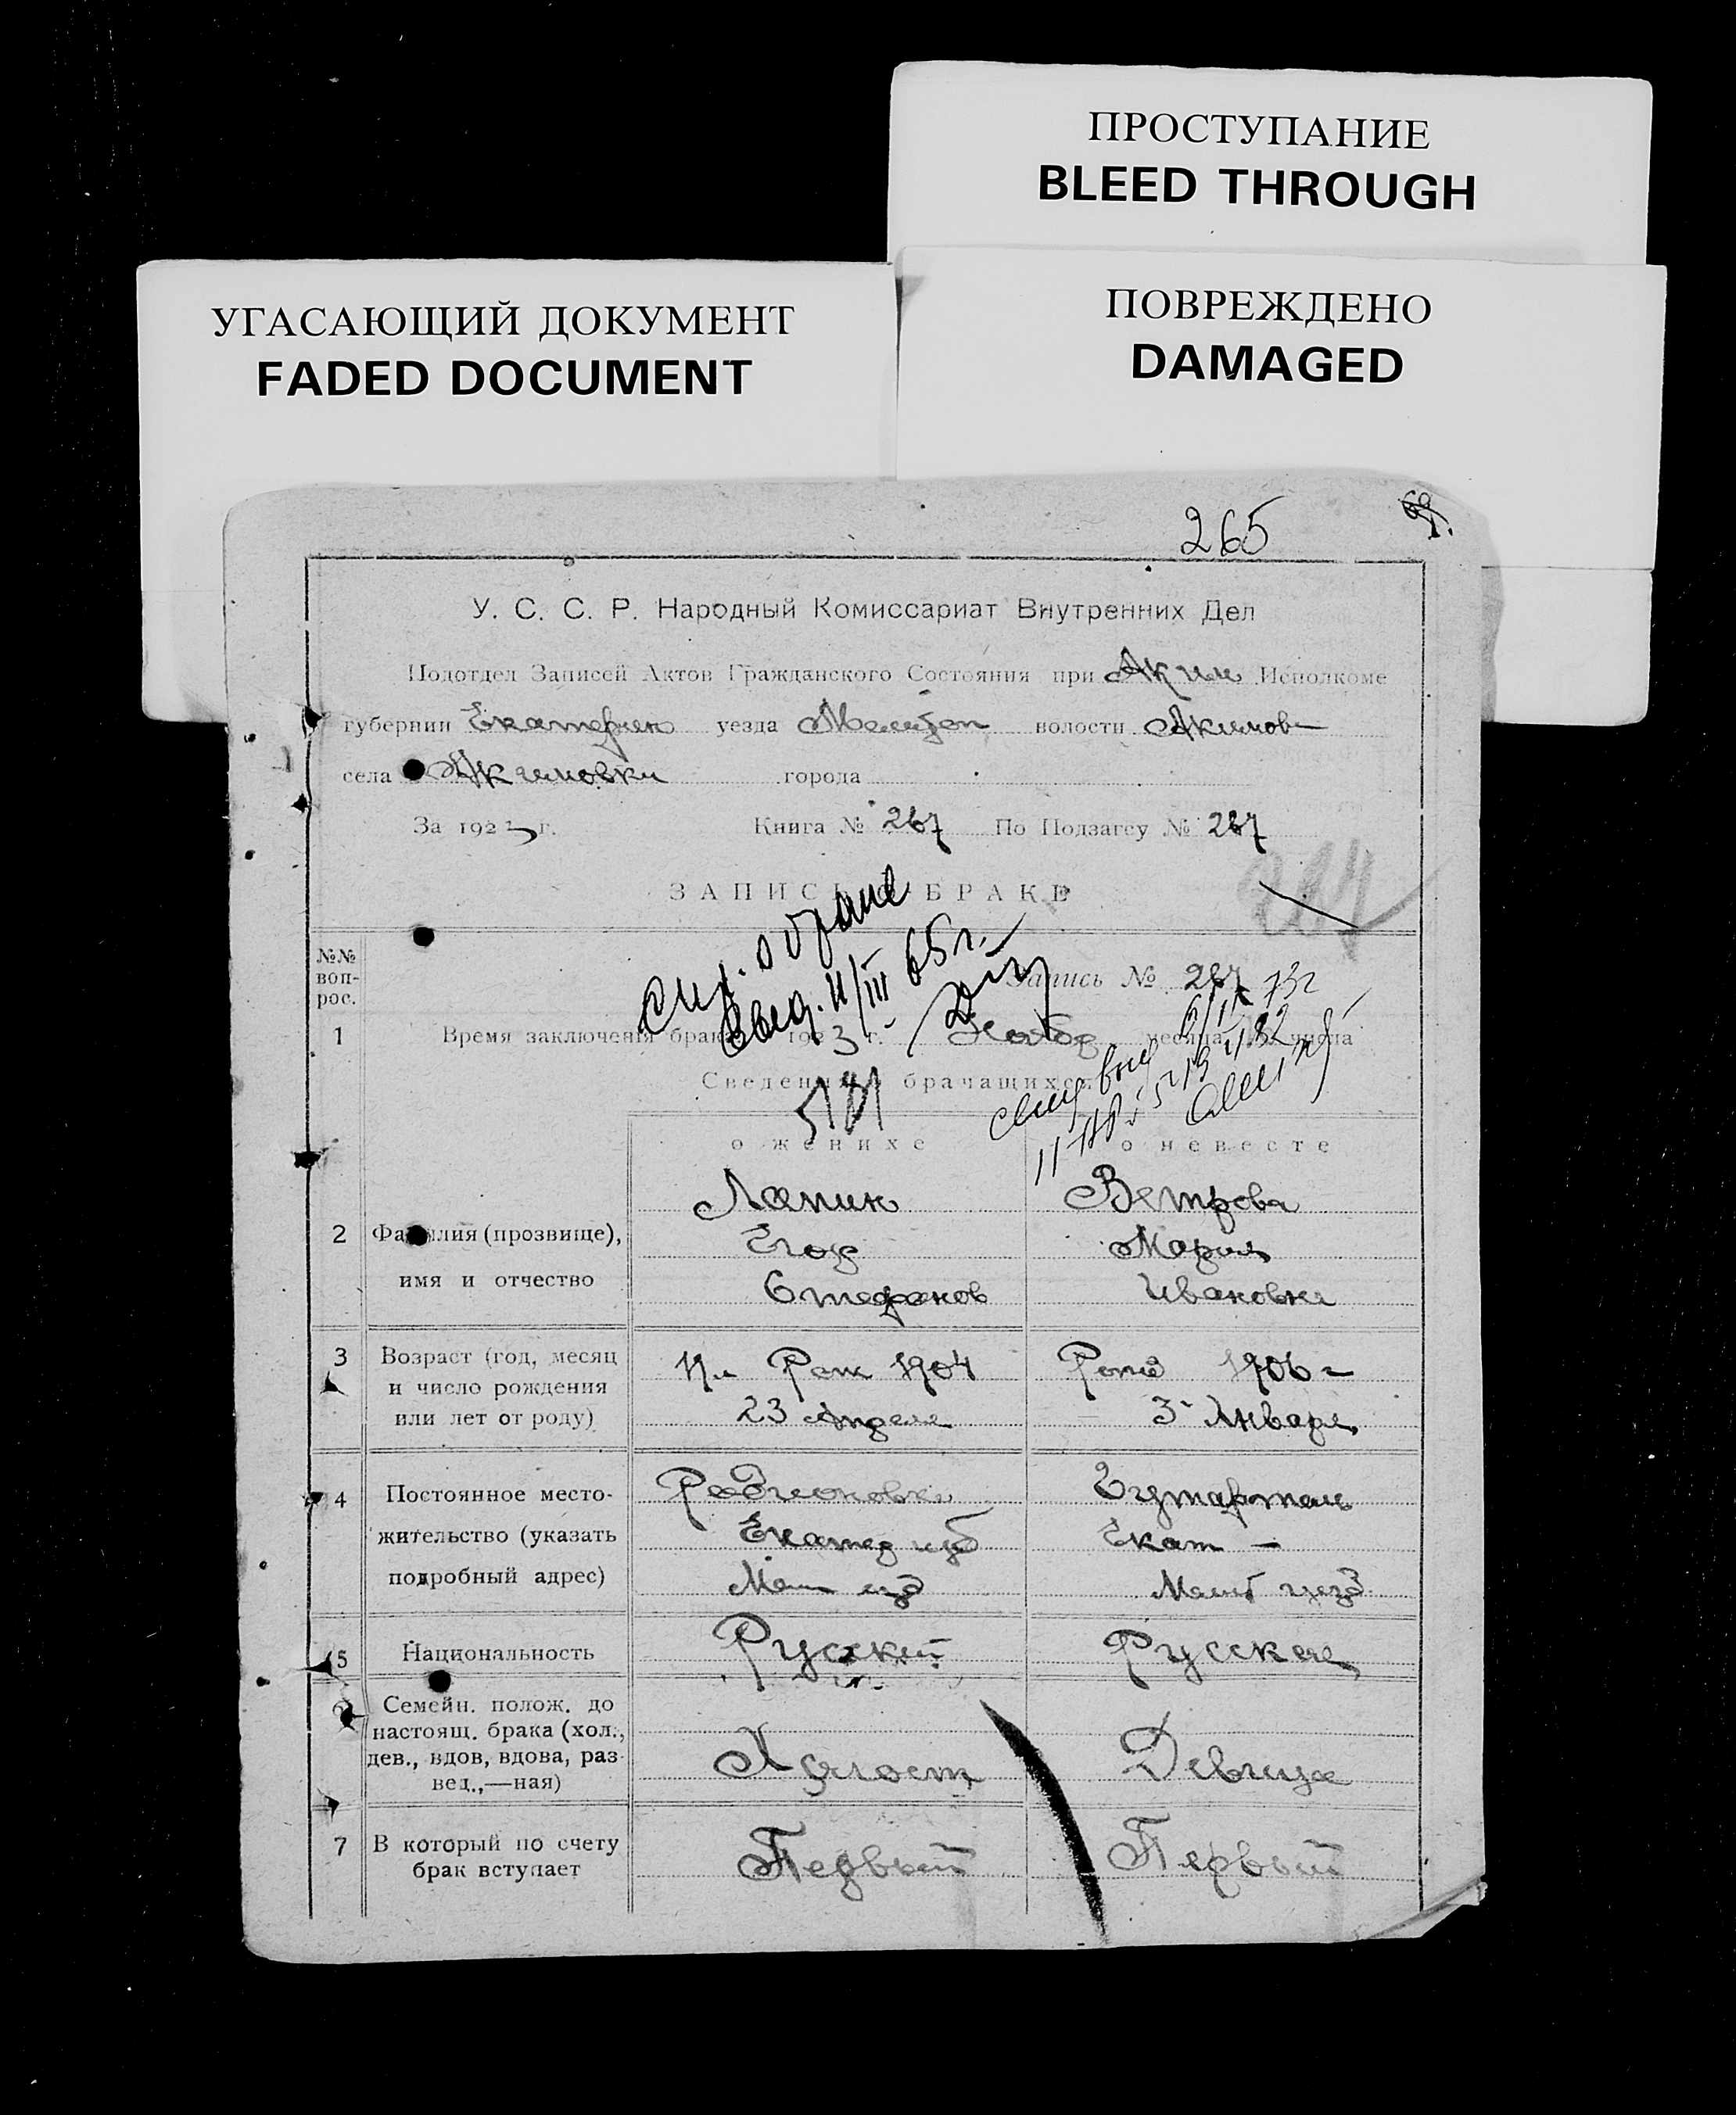 ПРОСТУПАНИЕ
BLEED THROUGH
УГАСАЮЩИЙ ДОКУМЕНТ
FADED DOCUMENT
ПОВРЕЖДЕНО
DAMAGED
265
У. С. С. Р. Народный Комиссариат Внутренних Дел
Подотдел Записей Актов Гражданского Состояния при Аким Исполкоме
губернии Екатерин уезда Мелитоп волости Акимов
села Акимовки города
За 1923 г. Книга № 267 По Подзагсу № 267
ЗАПИСЬ О БРАКЕ
№№ воп-рос.
Запись № 267
1 Время заключения брака 1923 г. месяца числа
Сведения о брачащихся
о женихе о невесте
Лапин Ветрова
Егор Мария
Стефанов Ивановна
2 Фамилия (прозвище),
имя и отчество
3 Возраст (год, месяц
и число рождения
или лет от роду)
Рож 1904 Рожд 1906 г
23 Апреля 3 Января
4 Постоянное место-
жительство (указать
подробный адрес)
Родионовка
Екатер Екат
Мелит уезд
5 Национальность Русский Русская
Семейн. полож. до
настоящ. брака (хол.,
дев., вдов, вдова, раз-
вед.,—ная)
Холост Девица
7 В который по счету
брак вступает
Первый Первый